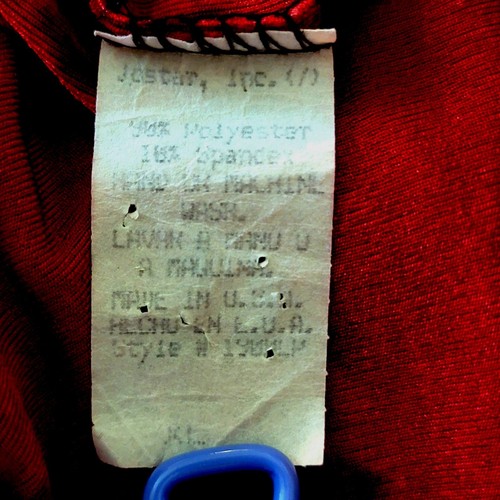 Jostar, Inc. (/)
90% Polyester
10% Spandex
HAND OR MACHINE
WASH.
LAVAR A MANO O
A MAQUINA.
MADE IN U.S.A.
HECHO EN E.U.A.
Style #